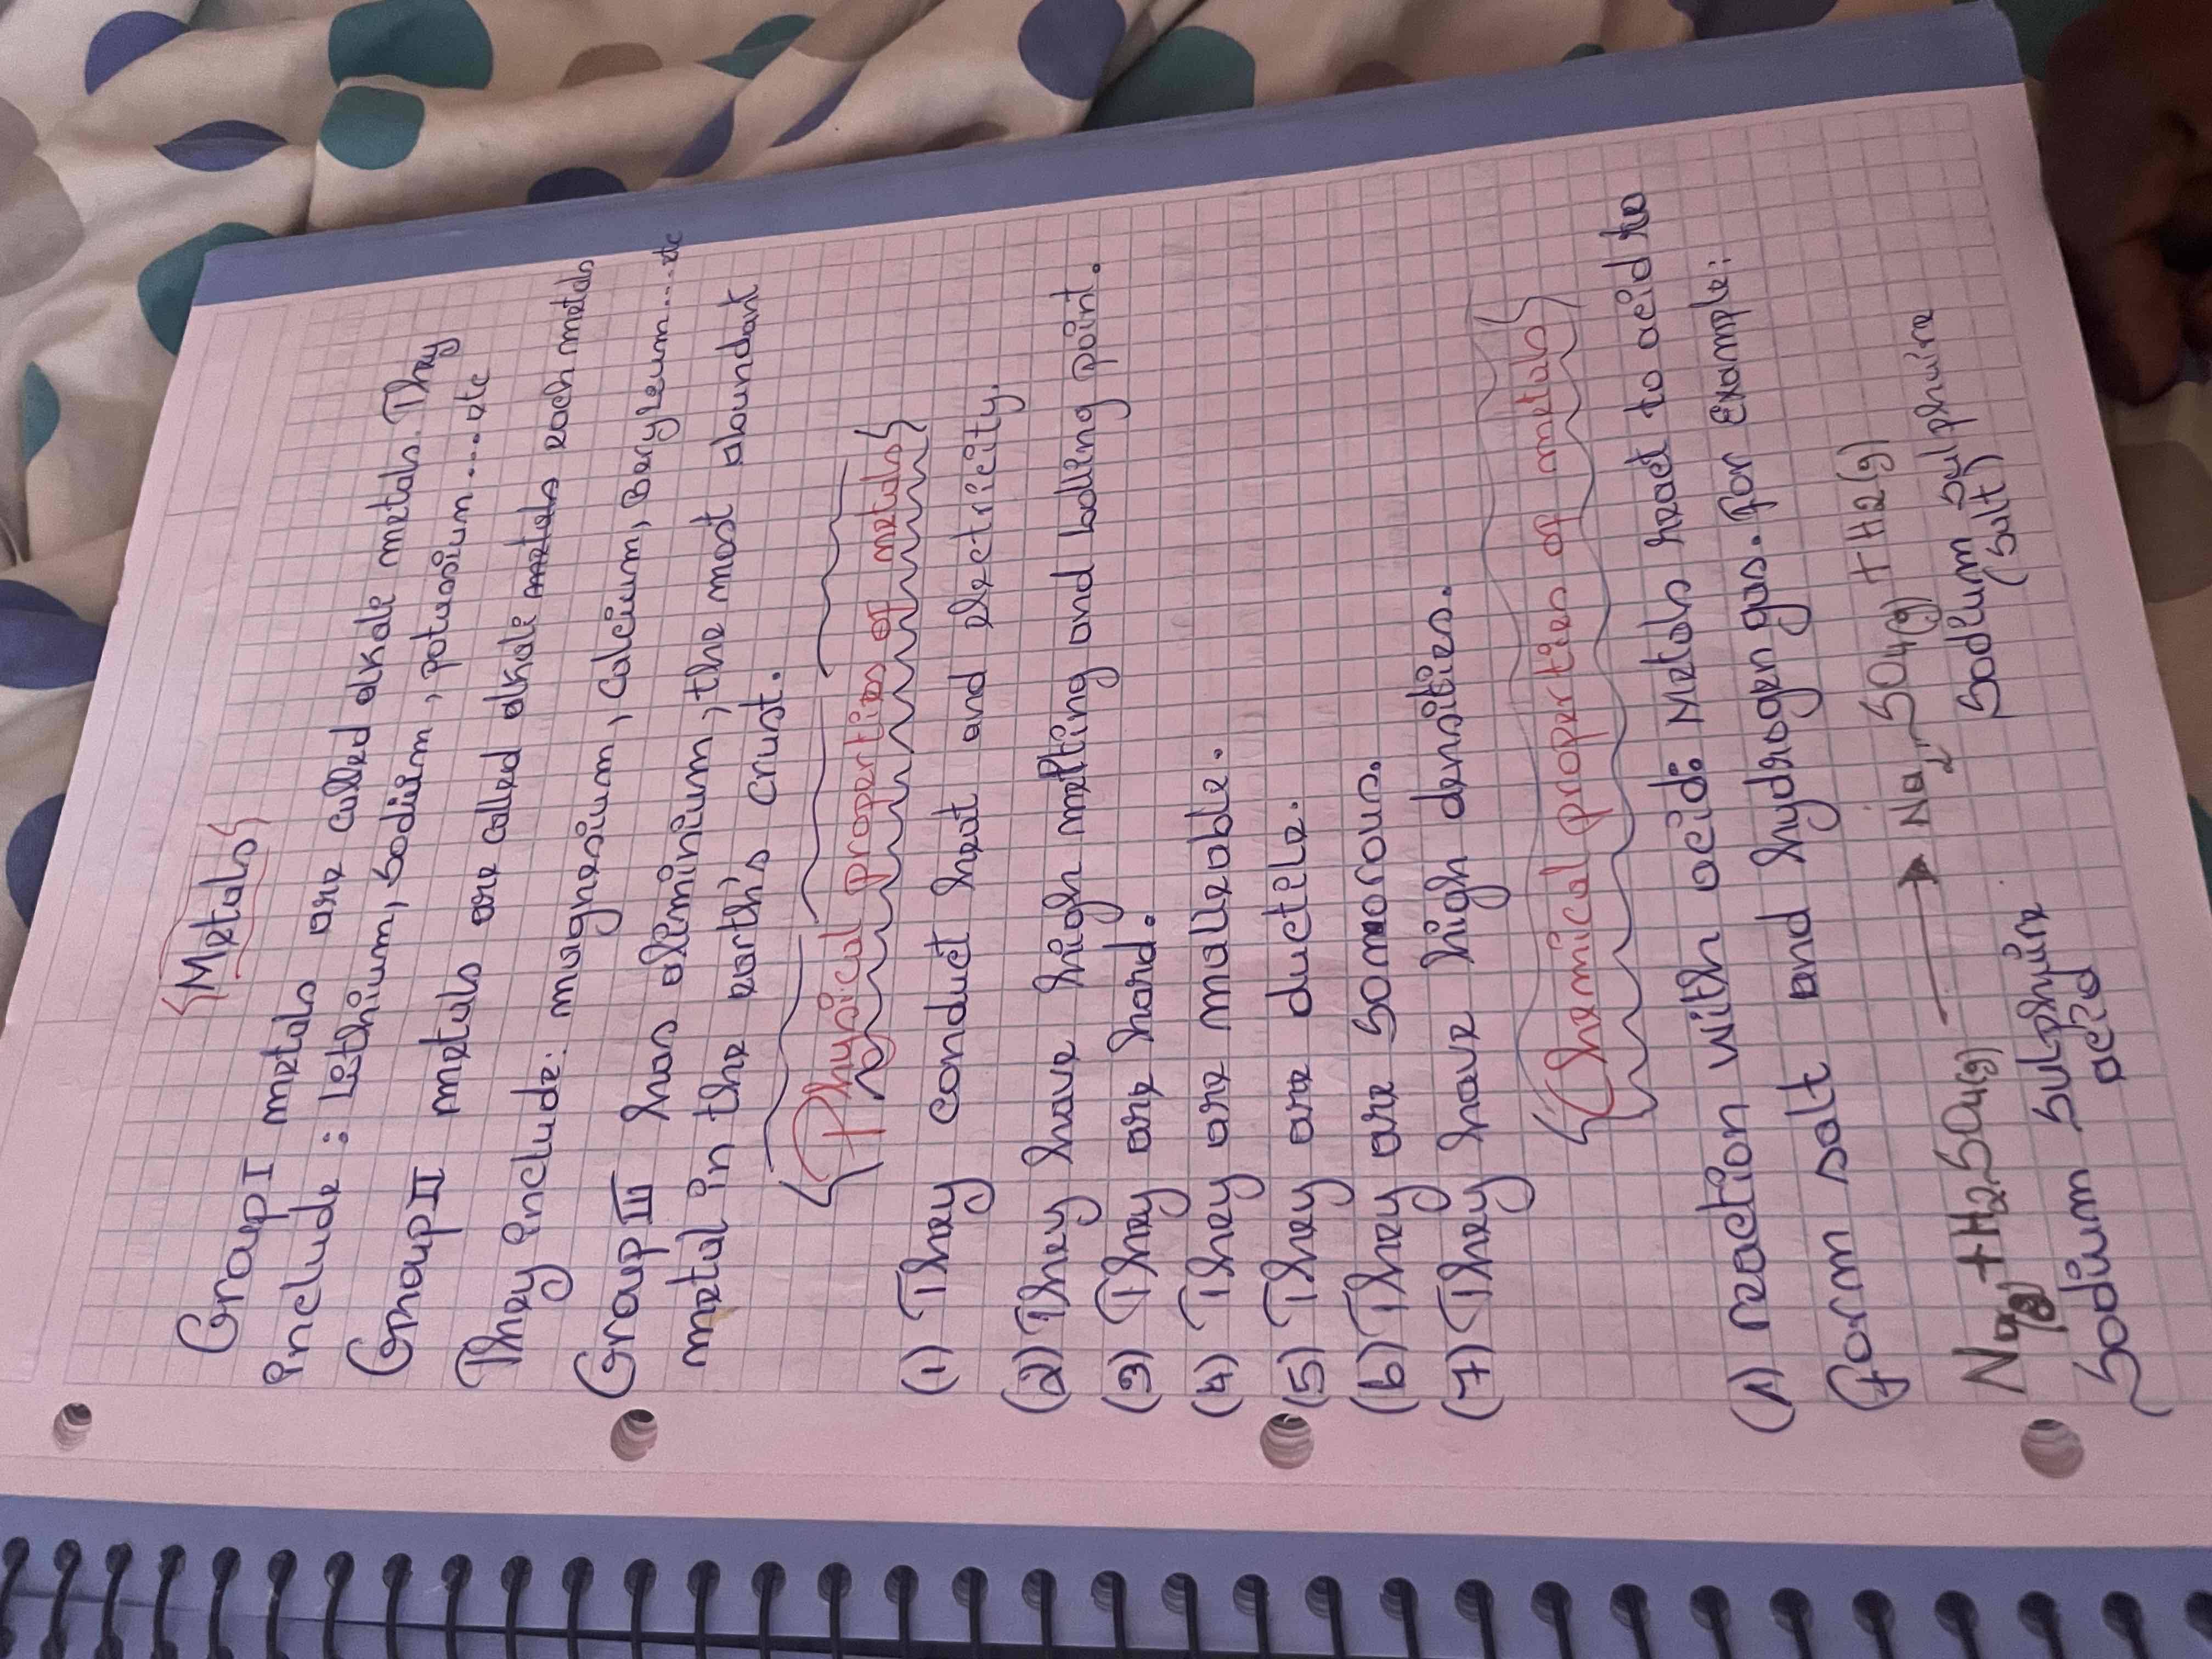 Metals
Group I metals are called alkali metals. They
include: Lithium, sodium, potassium....etc
Group II metals are called alkali metals each metals
They include: magnesium, calcium, Berylium....etc
Group III has aliminium, the most abundant
metal in the earth's crust.
Physical properties of metals
(1) They conduct heat and electricity.
(2) They have high melting and boiling point.
(3) They are hard.
(4) They are malleable.
(5) They are ductile.
(6) They are somorous.
(7) They have high densities.
Chemical properties of metals
(1) reaction with acid: Metals react to acid to
form salt and hydrogen gas. For Example:
Na(g) + H2SO4(g) → Na2SO4(g) + H2(g)
Sodium sulphuire acid Sodium sulphuire
(salt)